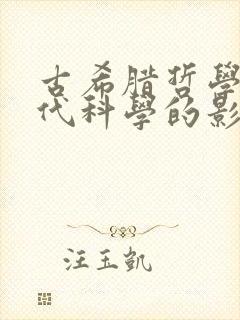 古希腊哲學
代科學的影
汪玉凱